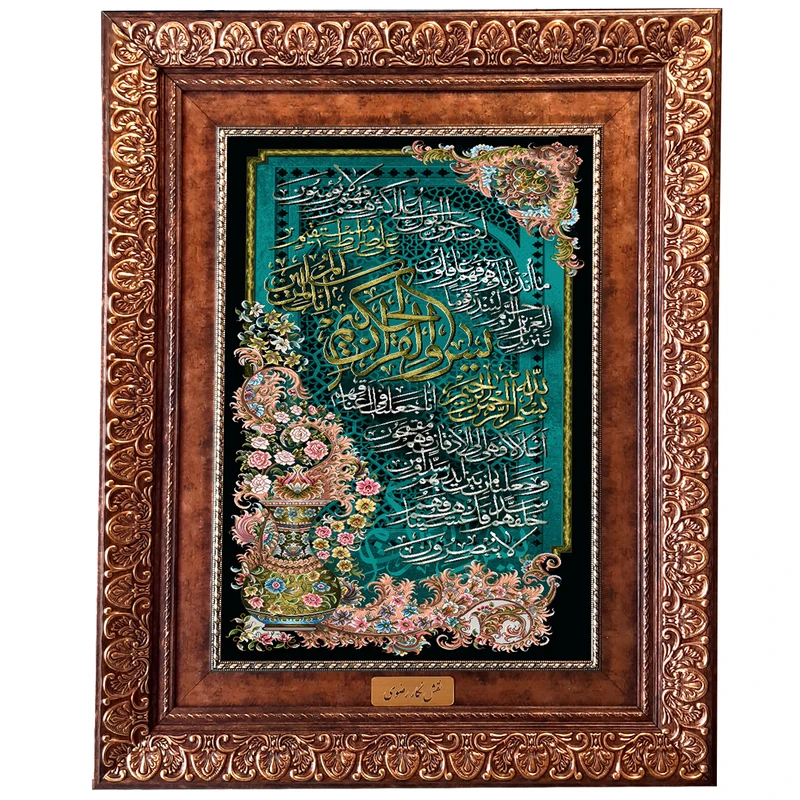 بسم الله الرحمن الرحيم
يس والقرآن الحكيم
إنك لمن المرسلين
على صراط مستقيم
تنزيل العزيز الرحيم لتنذر قوما
ما أنذر آباؤهم فهم غافلون
لقد حق القول على أكثرهم فهم لا يؤمنون
إنا جعلنا في أعناقهم
أغلالا فهي إلى الأذقان فهم مقمحون
وجعلنا من بين أيديهم سدا ومن
خلفهم سدا فأغشيناهم فهم
لا يبصرون
نقش نگار رضوی